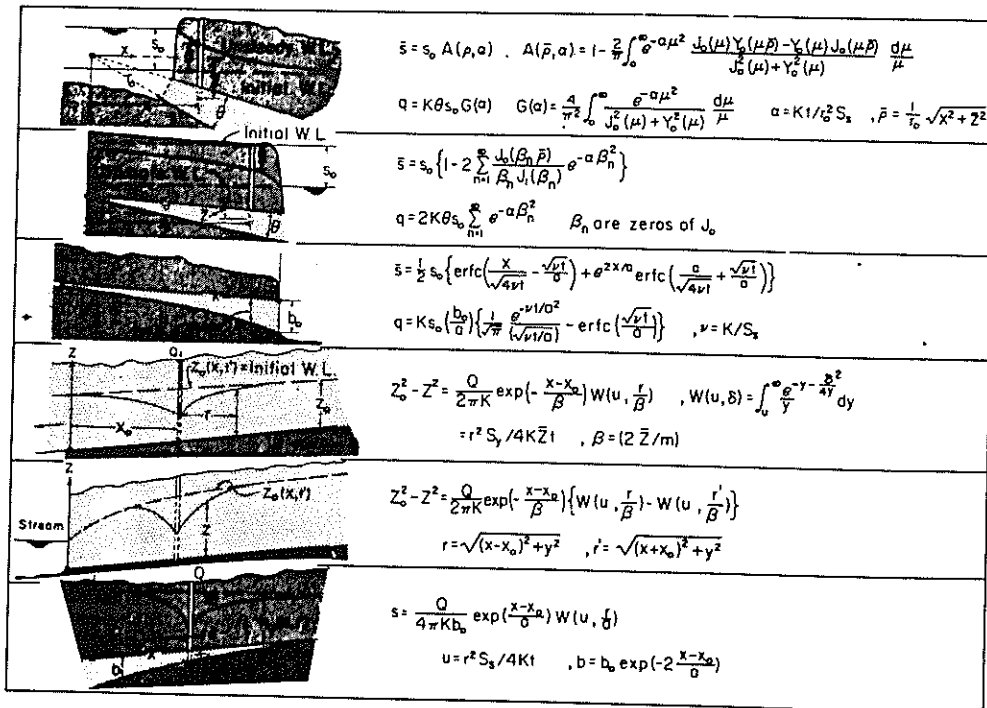 Unsteady W.L.
Initial W.L.
x
s₀
r₀
θ
s̄ = s₀ A(ρ,α) . A(ρ̄,α) = 1 - 2/π ∫₀^∞ e^(-αμ²) [J₀(μ) Y₀(μρ̄) - Y₀(μ) J₀(μρ̄)] / [J₀²(μ) + Y₀²(μ)] dμ/μ
q = Kθs₀G(α) G(α) = 4/π² ∫₀^∞ e^(-αμ²) / [J₀²(μ) + Y₀²(μ)] dμ/μ α = Kt/r₀²Sₛ , ρ̄ = 1/r₀ √(x²+z²)
Initial W.L.
s₀
θ
s̄ = s₀ {1 - 2 Σ_(n=1)^∞ J₀(βₙ ρ̄) / (βₙ J₁(βₙ)) e^(-αβₙ²)}
q = 2Kθs₀ Σ_(n=1)^∞ e^(-αβₙ²) βₙ are zeros of J₀
x
b₀
s̄ = ½ s₀ {erfc(x/√(4νt) - √(νt)/a) + e^(2x/a) erfc(a/√(4νt) + √(νt)/a)}
q = Ks₀ (b₀/a) {1/√π e^(-νt/a²) / (√(νt/a)) - erfc(√(νt)/a)} , ν = K/Sₛ
z
Q
Z₀(x,t') = Initial W.L.
r
x₀
Z₀
Z₀² - Z² = Q/(2πK) exp(-(x-x₀)/β) W(u, r/β) , W(u,δ) = ∫ᵤ^∞ e^(-y - δ²/4y) / y dy
= r² Sᵧ/4KZ̄t , β = (2 Z̄/m)
z
Z₀(x,t')
Z
Stream
Z₀² - Z² = Q/(2πK) exp(-(x-x₀)/β) {W(u, r/β) - W(u, r'/β)}
r = √((x-x₀)² + y²) , r' = √((x+x₀)² + y²)
Q
x
s = Q/(4πKb₀) exp((x-x₀)/a) W(u, r/a)
u = r² Sₛ/4Kt , b = b₀ exp(-2 (x-x₀)/a)